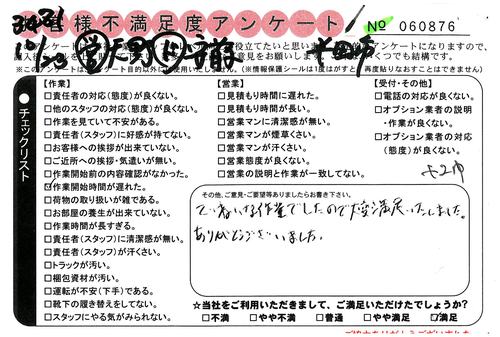 お客様不満足度アンケート
No 060876
チェックリスト
【作業】
□責任者の対応(態度)が良くない。
□他のスタッフの対応(態度)が良くない。
□作業を見ていて不安がある。
□責任者(スタッフ)に好感が持てない。
□お客様への挨拶が出来ていない。
□ご近所への挨拶・気遣いが無い。
□作業開始前の内容確認がなかった。
☑作業開始時間が遅れた。
□荷物の取り扱いが雑である。
□お部屋の養生が出来ていない。
□作業時間が長すぎる。
□責任者(スタッフ)に清潔感が無い。
□責任者(スタッフ)が汗くさい。
□トラックが汚い。
□梱包資材が汚い。
□運転が不安(下手)である。
□靴下の履き替えをしてない。
□スタッフにやる気がみられない。
【営業】
□見積もり時間に遅れた。
□見積もり時間が長い。
□営業マンに清潔感が無い。
□営業マンが煙草くさい。
□営業マンが汗くさい。
□営業態度が良くない。
□営業の説明と作業が一致してない。
【受付・その他】
□電話の対応が良くない。
□オプション業者の説明
・作業が良くない。
□オプション業者の対応
(態度)が良くない。
その他、ご意見・ご要望等ありましたらお書き下さい。
ていねいな作業でしたので大変満足いたしました。
ありがとうございました。
☆当社をご利用いただきまして、ご満足いただけたでしょうか?
□不満 □やや不満 □普通 □やや満足 ☑満足